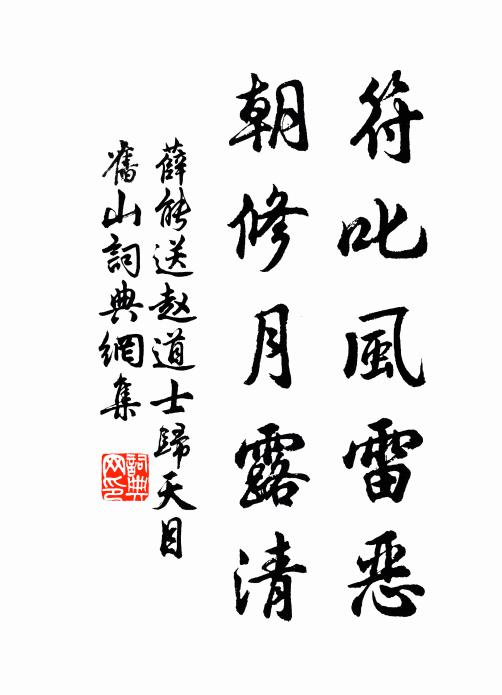 符叱風雷惡
朝修月露清
薛能送赵道士歸天目
舊山詞典網集
詞典
网印